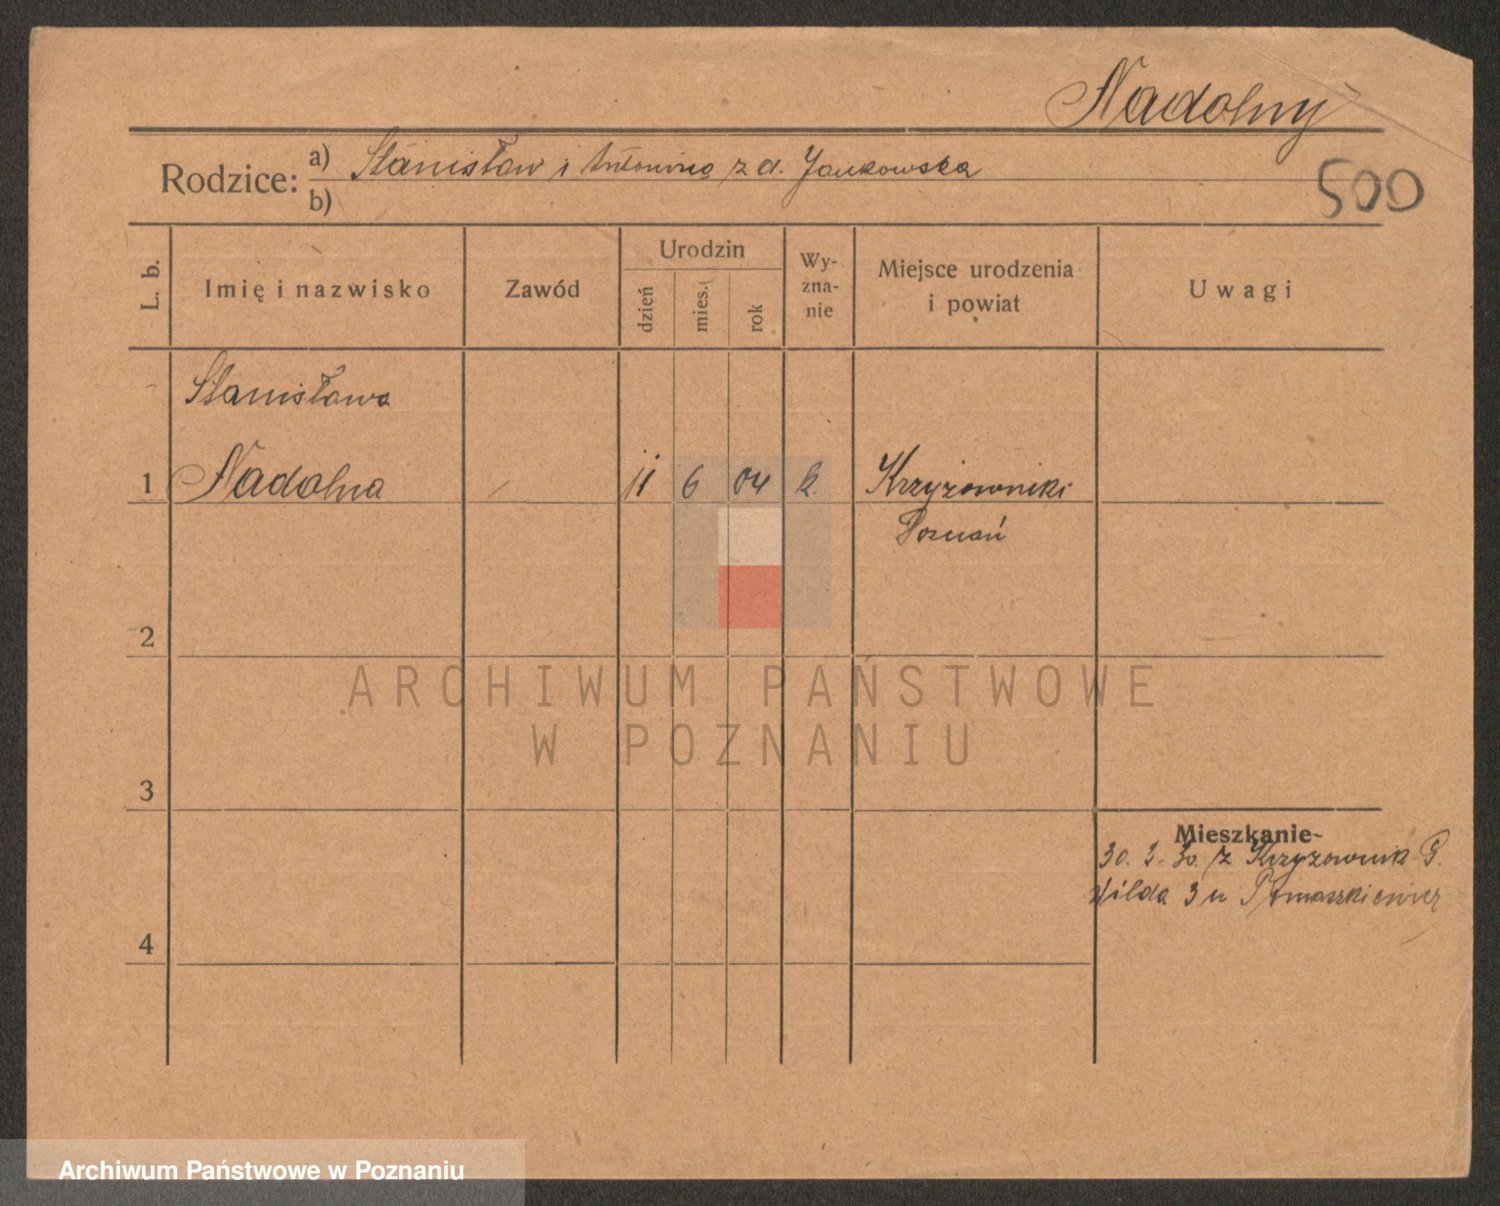 Nadolny
Rodzice: a) Stanisław i Antonina z d. Jankowska
b)
500
L. b.
Imię i nazwisko
Zawód
Urodzin
dzień
mies.
rok
Wy-
zna-
nie
Miejsce urodzenia
i powiat
Uwagi
Stanisława
1 Nadolna 11 6 04 k. Krzyżowniki
Poznań
2
ARCHIWUM PAŃSTWOWE
W POZNANIU
3
Mieszkanie-
30. 3. 30. z Krzyżownik P.
4
Wilda 3 u
Archiwum Państwowe w Poznaniu